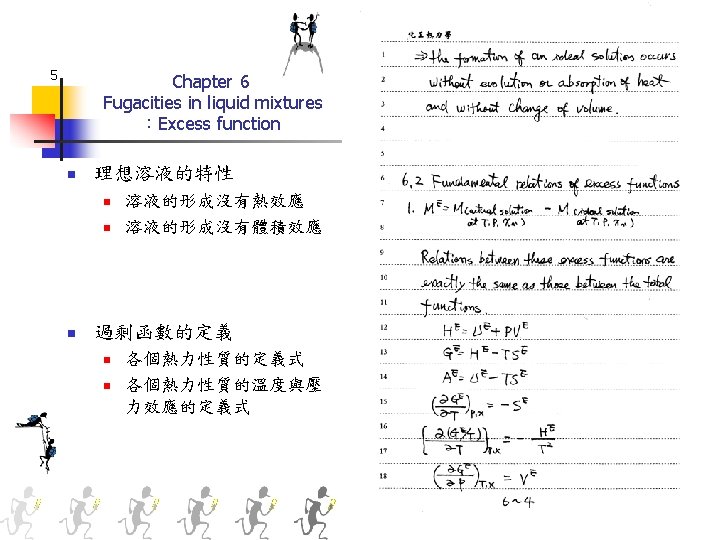 5
Chapter 6
Fugacities in liquid mixtures
：Excess function
理想溶液的特性
溶液的形成沒有熱效應
溶液的形成沒有體積效應
過剩函數的定義
各個熱力性質的定義式
各個熱力性質的溫度與壓
力效應的定義式
化工熱力學
1 ⇒ the formation of an ideal solution occurs
2 without evolution or absorption of heat
3 and without change of volume.
4
5
6 6.2 Fundamental relations of excess functions
7 1. M^E = M(actual solution at T, P, x_m) − M(ideal solution at T, P, x_m)
8
9 Relations between these excess functions are
10 exactly the same as those between the total
11 functions
12 H^E = U^E + PV^E
13 G^E = H^E − TS^E
14 A^E = U^E − TS^E
15 (∂G^E/∂T)_P,x = −S^E
16
17 [∂(G^E/T)/∂T]_T,x = − H^E/T^2
18 (∂G^E/∂P)_T,x = V^E
6~4